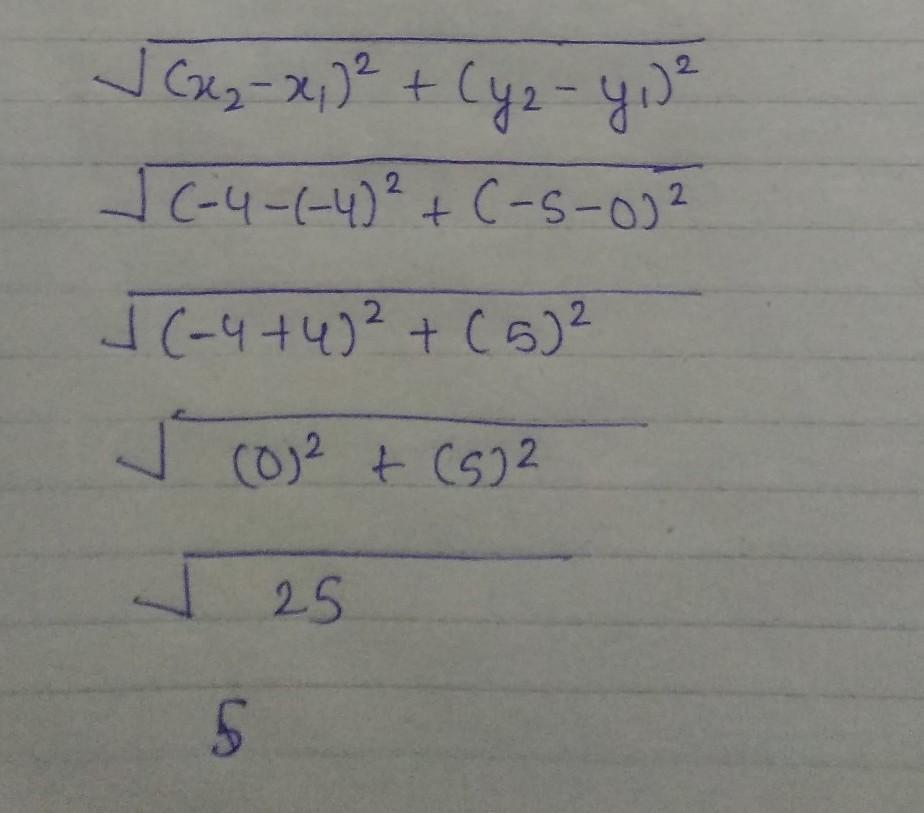 √(x₂-x₁)² + (y₂-y₁)²
√(-4-(-4)² + (-5-0)²
√(-4+4)² + (5)²
√(0)² + (5)²
√25
5